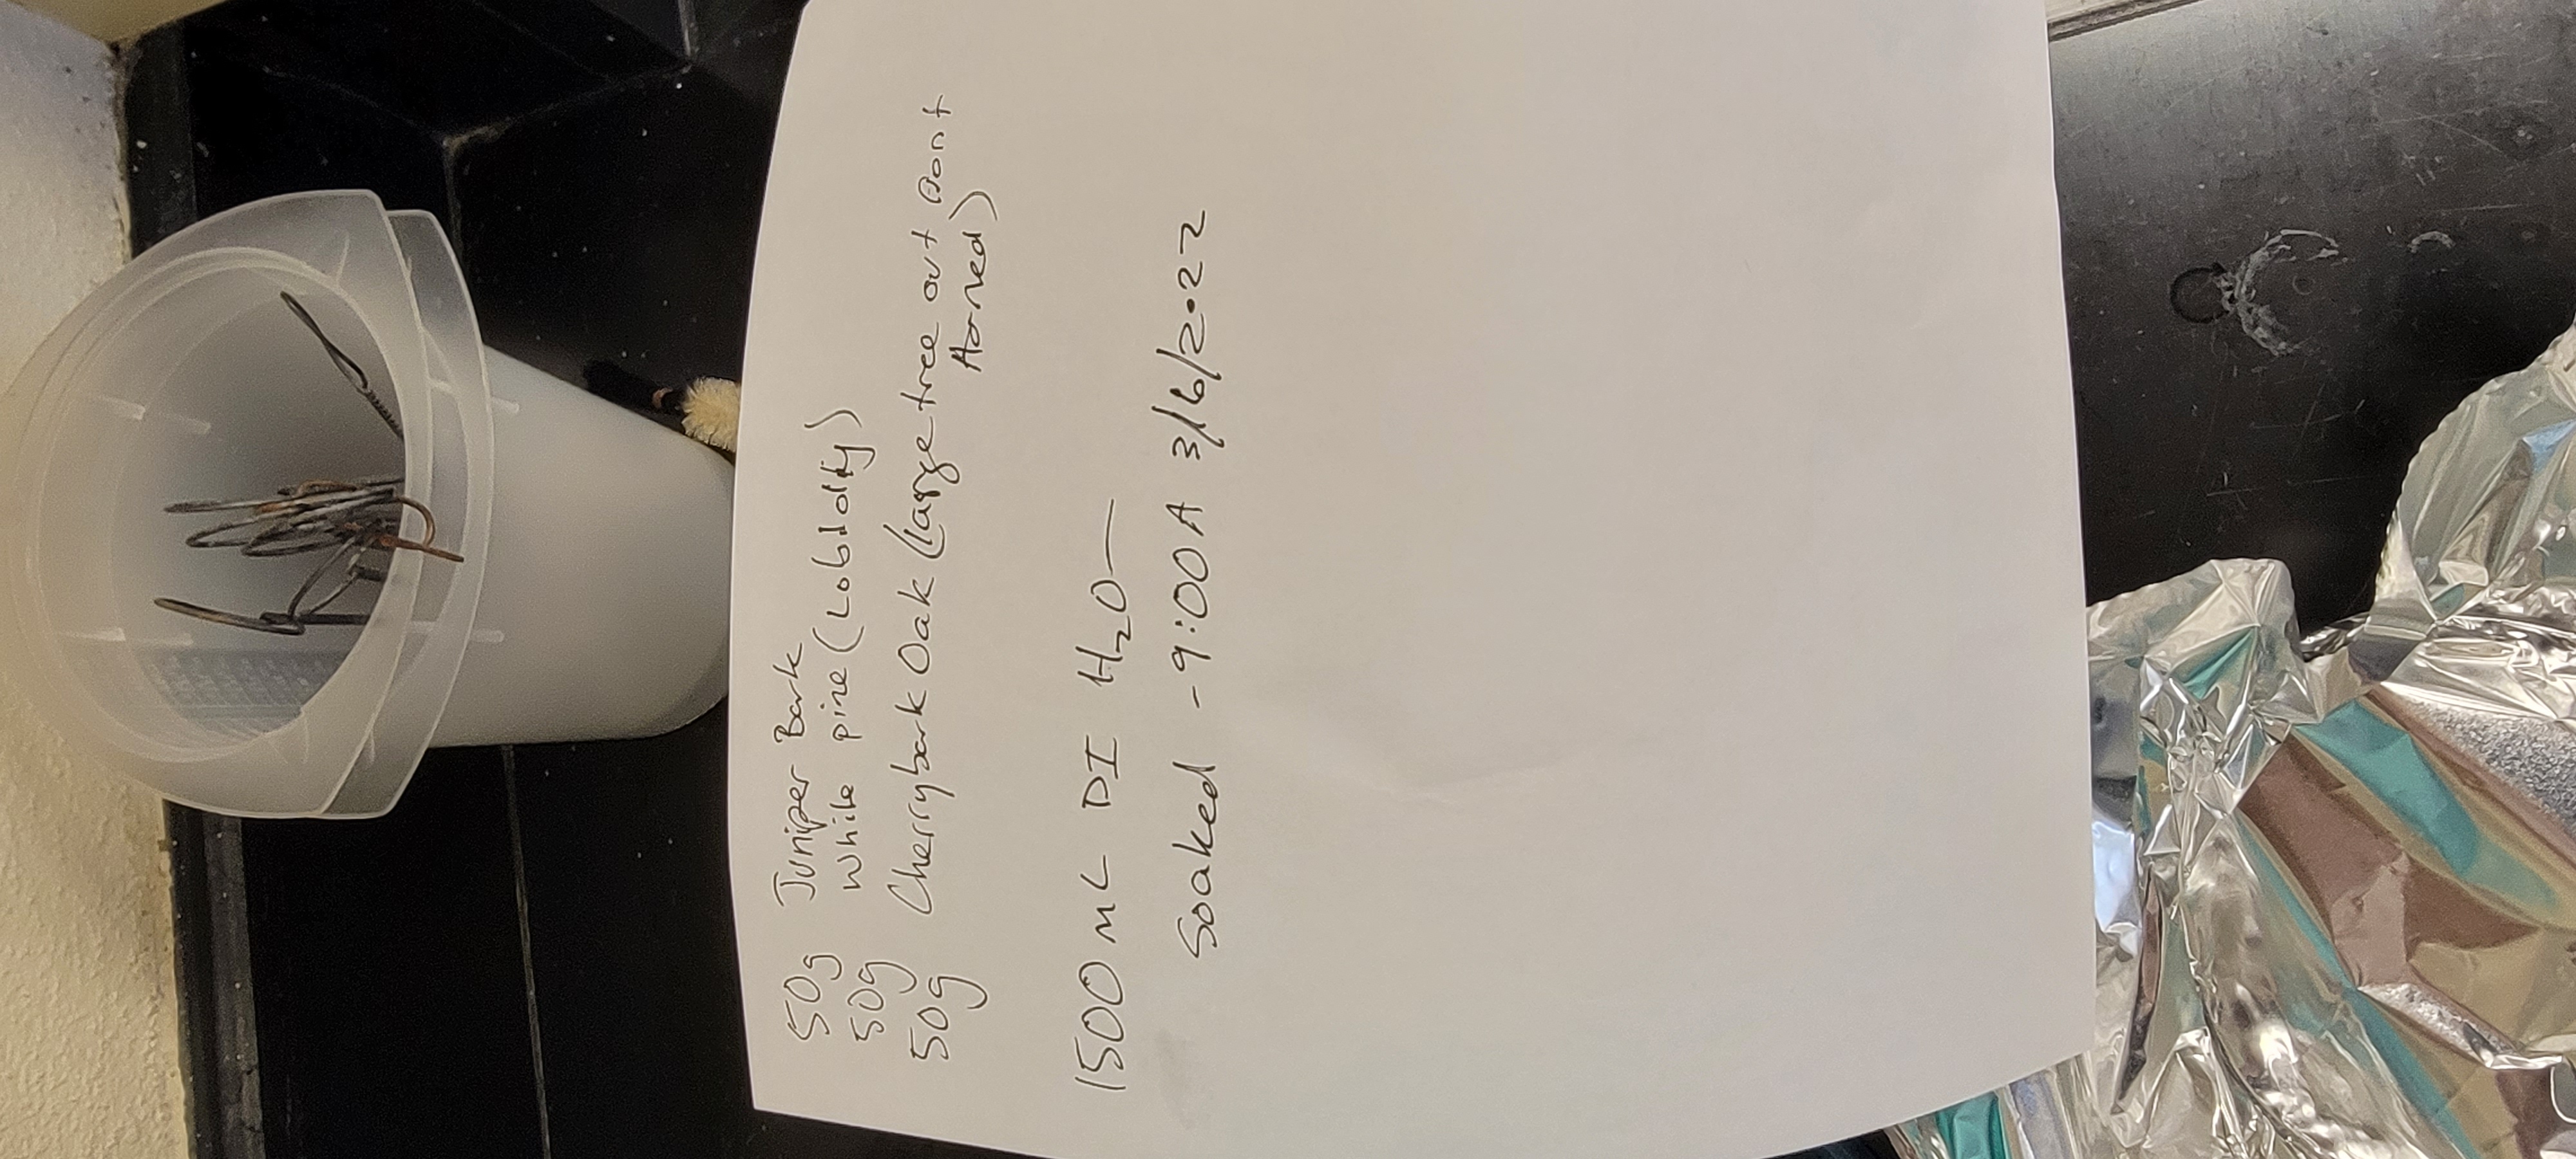 50g Juniper Bark
50g White pine (Loblolly)
50g Cherrybark Oak (large tree out front
Harned)
1500 mL DI H₂O—
Soaked - 9:00 A 3/6/2022